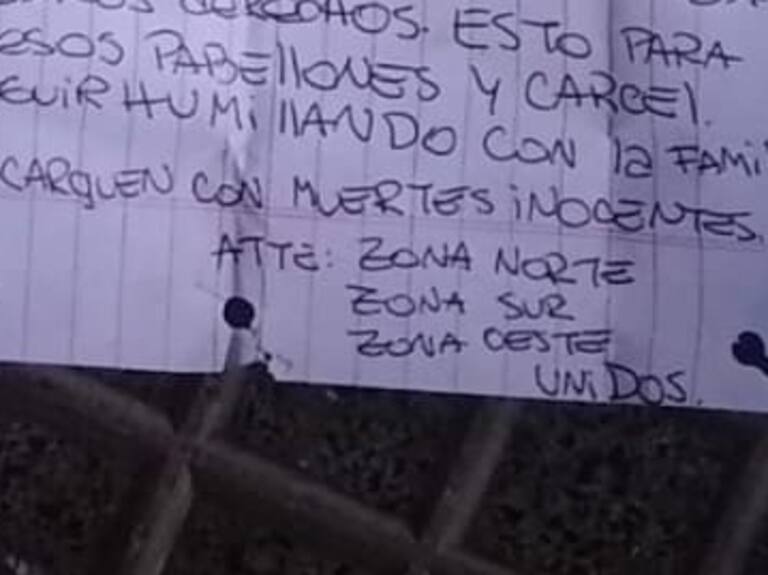 DERECHOS. ESTO PARA
ESOS PABEllONES Y CARCEl.
HUMillANDO CON la FAMI
CARGUEN CON MUERTES iNOCENTES.
ATTE: ZONA NORTE
ZONA SUR
ZONA OESTE
UNiDOS.